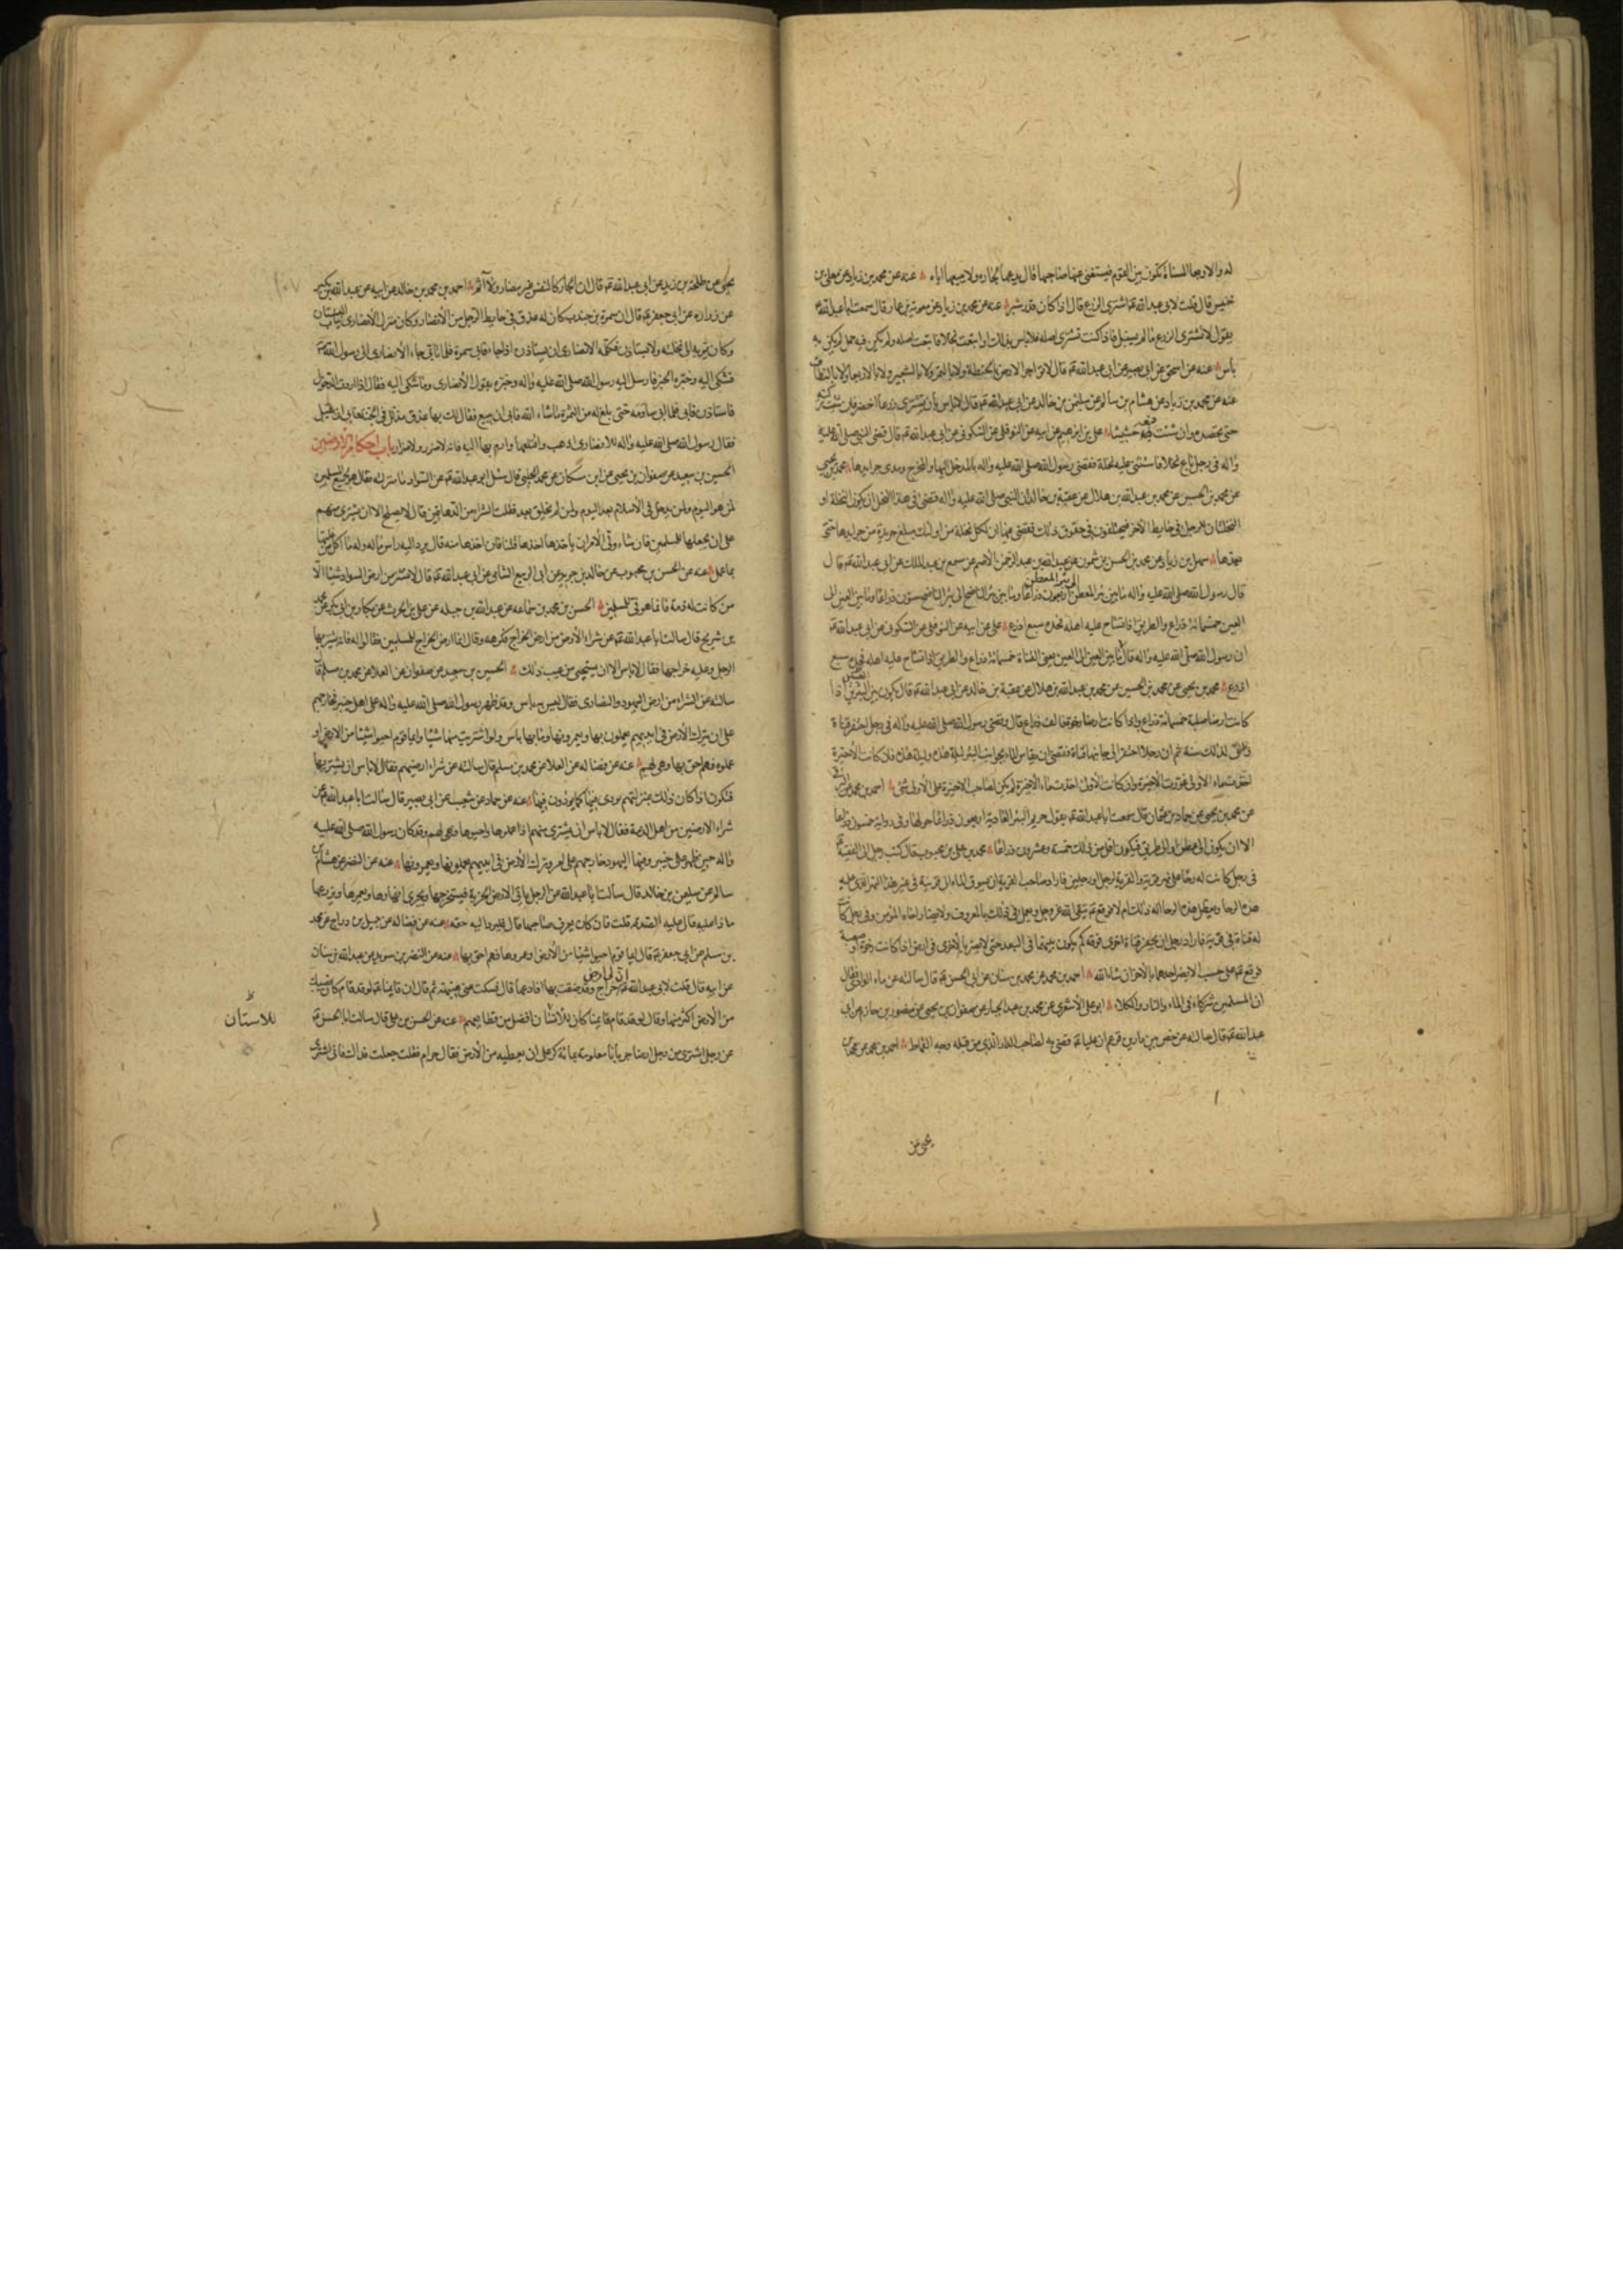 له والاربعا المسناة تكون بين القوم فيستغنى عنها صاحبها قال يدعها لجاره ولا يبيعها اياه عنه عن محمد بن زياد عن معلى بن
خنيس قال قلت لابى عبد الله ع اشترى الزرع قال اذا كان قدر شبر عنه عن محمد بن زياد عن معوية بن عمار قال سمعت ابا عبد الله ع
يقول لا تشترى الزرع ما لم يسنبل فاذا كنت تشترى اصله فلا باس بذلك او ابتعت نخلا فابتعت اصله ولم يكن فيه حمل لم يكن به
باس عنه عن اسحق عن ابى بصير عن ابى عبد الله ع قال لا تواجر الارض بالحنطة ولا بالتمر ولا بالشعير ولا بالاربعا ولا بالنطاف
عنه عن محمد بن زياد عن هشام بن سالم عن سليمن بن خالد عن ابى عبد الله ع قال لا باس بان تشترى زرعا اخضر فان شئت تركته
حتى تحصده وان شئت فبعه حشيشا على بن ابرهيم عن ابيه عن النوفلى عن السكونى عن ابى عبد الله ع قال قضى النبى صلى الله عليه
واله فى رجل باع نخلا فاستثنى عليه نخلة فقضى رسول الله صلى الله عليه واله بالمدخل اليها والمخرج ومدى جرايدها محمد بن يحيى
عن محمد بن الحسين عن محمد بن عبد الله بن هلال عن عقبة بن خالد ان النبى صلى الله عليه واله قضى فى هذا النخل ان يكون النخلة او
النخلتان للرجل فى حايط الاخر فيختلفون فى حقوق ذلك فقضى فيها ان لكل نخلة من اولئك مبلغ جريدة من جرايدها حتى
بعدها سهل بن زياد عن محمد بن الحسن بن شمون عن عبد الله بن عبد الرحمن الاصم عن مسمع بن عبد الملك عن ابى عبد الله ع قال
قال رسول الله صلى الله عليه واله ما بين بئر المعطن الى بئر المعطن اربعون ذراعا وما بين بئر الناضح الى بئر الناضح ستون ذراعا وما بين العين الى
العين خمسمائة ذراع والطريق اذا تشاح عليه اهله فحده سبع اذرع على عن ابيه عن النوفلى عن السكونى عن ابى عبد الله ع
ان رسول الله صلى الله عليه واله قال ما بين العين الى العين يعنى القناة خمسمائة ذراع والطريق اذا تشاح عليه اهله فحده سبع
اذرع محمد بن يحيى عن محمد بن الحسين عن محمد بن عبد الله بن هلال عن عقبة بن خالد عن ابى عبد الله ع قال يكون بين البئرين اذا
كانت ارضا صلبة خمسمائة ذراع واذا كانت ارضا رخوة فالف ذراع قال وقضى رسول الله صلى الله عليه واله فى رجل احتفر قناة
واتى لذلك سنة ثم ان رجلا احتفر الى جانبها قناة فقضى ان يقاس الماء بجوانب البئر ليلة هذه وليلة هذه فان كانت الاخيرة
اخذت ماء الاولى عورت الاخيرة وان كانت الاولى اخذت ماء الاخيرة لم يكن لصاحب الاخيرة على الاولى شئ احمد بن محمد عن البرقى
عن محمد بن يحيى عن حماد بن عثمان قال سمعت ابا عبد الله ع يقول حريم البئر العادية اربعون ذراعا حولها وفى رواية خمسون ذراعا
الا ان يكون الى عطن او الى طريق فيكون اقل من ذلك خمسة وعشرون ذراعا محمد بن على بن محبوب قال كتب رجل الى الفقيه ع
فى رجل كانت له رحا على نهر قرية والقرية لرجل او رجلين فاراد صاحب القرية ان يسوق الماء الى قريته فى غير هذا النهر الذى عليه
هذه الرحا ويعطل هذه الرحا اله ذلك ام لا فوقع ع يتقى الله عز وجل ويعمل فى ذلك بالمعروف ولا يضار اخاه المؤمن وفى رجل كانت
له قناة فى قرية فاراد رجل ان يحفر قناة اخرى فوقه كم يكون بينهما فى البعد حتى لا يضر بالاخرى فى ارض اذا كانت رخوة او صعبة
فوقع ع على حسب الا يضر احدهما بالاخر ان شاء الله احمد بن محمد عن محمد بن سنان عن ابى الحسن ع قال سالته عن ماء الوادى فقال
ان المسلمين شركاء فى الماء والنار والكلاء ابو على الاشعرى عن محمد بن عبد الجبار عن صفوان بن يحيى عن منصور بن حازم عن ابى
عبد الله ع قال سالته عن خص بين دارين فزعم ان عليا ع قضى به لصاحب الدار الذى من قبله وجه القماط احمد بن محمد عن محمد بن
يحيى عن
يحيى عن طلحة بن زيد عن ابى عبد الله ع قال ان الجار كالنفس غير مضار ولا اثم احمد بن محمد بن خالد عن ابيه عن عبد الله بن بكير
عن زرارة عن ابى جعفر ع قال ان سمرة بن جندب كان له عذق فى حايط الرجل من الانصار وكان منزل الانصارى بباب البستان
وكان يمر به الى نخلته ولا يستاذن فكلمه الانصارى ان يستاذن اذا جاء فابى سمرة فلما تابى جاء الانصارى الى رسول الله ع
فشكى اليه وخبره الخبر فارسل اليه رسول الله صلى الله عليه واله وخبره بقول الانصارى وما شكى اليه فقال اذا اردت الدخول
فاستاذن فابى فلما ابى ساومه حتى بلغ له من الثمرة ما شاء الله فابى ان يبيع فقال لك بها عذق مذلل فى الجنة فابى ان يقبل
فقال رسول الله صلى الله عليه واله للانصارى اذهب واقلعها وارم بها اليه فانه لا ضرر ولا ضرار باب احكام الارضين
الحسين بن سعيد عن صفوان بن يحيى عن ابن مسكان عن محمد الحلبى قال سئل ابو عبد الله ع عن السواد ما منزلته فقال هو لجميع المسلمين
لمن هو اليوم ولمن يدخل فى الاسلام بعد اليوم ولمن لم يخلق بعد فقلت الشراء من الدهاقين قال لا يصلح الا ان يشترى منهم
على ان يجعلها للمسلمين فان شاء ولى الامر ان ياخذها اخذها قلنا فان اخذها منه قال يرد اليه راس ماله وله ما اكل من غلتها
بما عمل عنه عن الحسن بن محبوب عن خالد بن جرير عن ابى الربيع الشامى عن ابى عبد الله ع قال لا تشتر من ارض السواد شيئا الا
من كانت له ذمة فانما هو فئ للمسلمين الحسن بن محمد بن سماعه عن عبد الله بن جبله عن على بن الحرث عن بكار بن ابى بكر عن محمد
بن شريح قال سالت ابا عبد الله ع عن شراء الارض من ارض الخراج فكرهه وقال انما ارض الخراج للمسلمين فقالوا له فانه يشتريها
الرجل وعليه خراجها فقال لا باس الا ان يستحيى من عيب ذلك الحسين بن سعيد عن صفوان عن العلا عن محمد بن مسلم قال
سالته عن الشراء من ارض اليهود والنصارى فقال ليس به باس وقد ظهر رسول الله صلى الله عليه واله على اهل خيبر فخارجهم
على ان يترك الارض فى ايديهم يعملون بها ويعمرونها وما بها باس ولو اشتريت منها شيئا وايما قوم احيوا شيئا من الارض او
عملوه فهم احق بها وهى لهم عنه عن فضاله عن العلا عن محمد بن مسلم قال سالته عن شراء ارضهم فقال لا باس ان يشتريها
فتكون اذا كان ذلك بمنزلتهم يودى فيها كما يودون فيها عنه عن حماد عن شعيب عن ابى بصير قال سالت ابا عبد الله ع عن
شراء الارضين من اهل الذمة فقال لا باس ان يشترى منهم اذا عملوها واحيوها وهى لهم وقد كان رسول الله صلى الله عليه
واله حين ظهر على خيبر وفيها اليهود خارجهم على امر وترك الارض فى ايديهم يعملونها ويعمرونها عنه عن النضر عن هشام بن
سالم عن سليمن بن خالد قال سالت ابا عبد الله عن الرجل ياتى الارض الخربة فيستخرجها ويجرى انهارها ويعمرها ويزرعها
ماذا عليه قال عليه الصدقة قلت فان كان يعرف صاحبها قال فليرد اليه حقه عنه عن فضاله عن جميل بن دراج عن محمد
بن مسلم عن ابى جعفر ع قال ايما قوم احيوا شيئا من الارض او عمروها فهم احق بها عنه عن النضر بن سويد عن عبد الله بن سنان
عن ابيه قال قلت لابى عبد الله ع ان لى ارض خراج وقد ضقت بها افادعها قال فسكت عنى هنيهة ثم قال ان قايمنا ع لو قد قام كان نصيبك
من الارض اكثر منها وقال لو قد قام قايمنا كان للانسان افضل من قطايعهم عنه عن الحسن بن على قال سالت ابا الحسن ع
عن رجل اشترى من رجل ارضا جربانا معلومة بمائة كر على ان يعطيه من الارض فقال حرام فقلت جعلت فداك فانى اشترى
للاستان